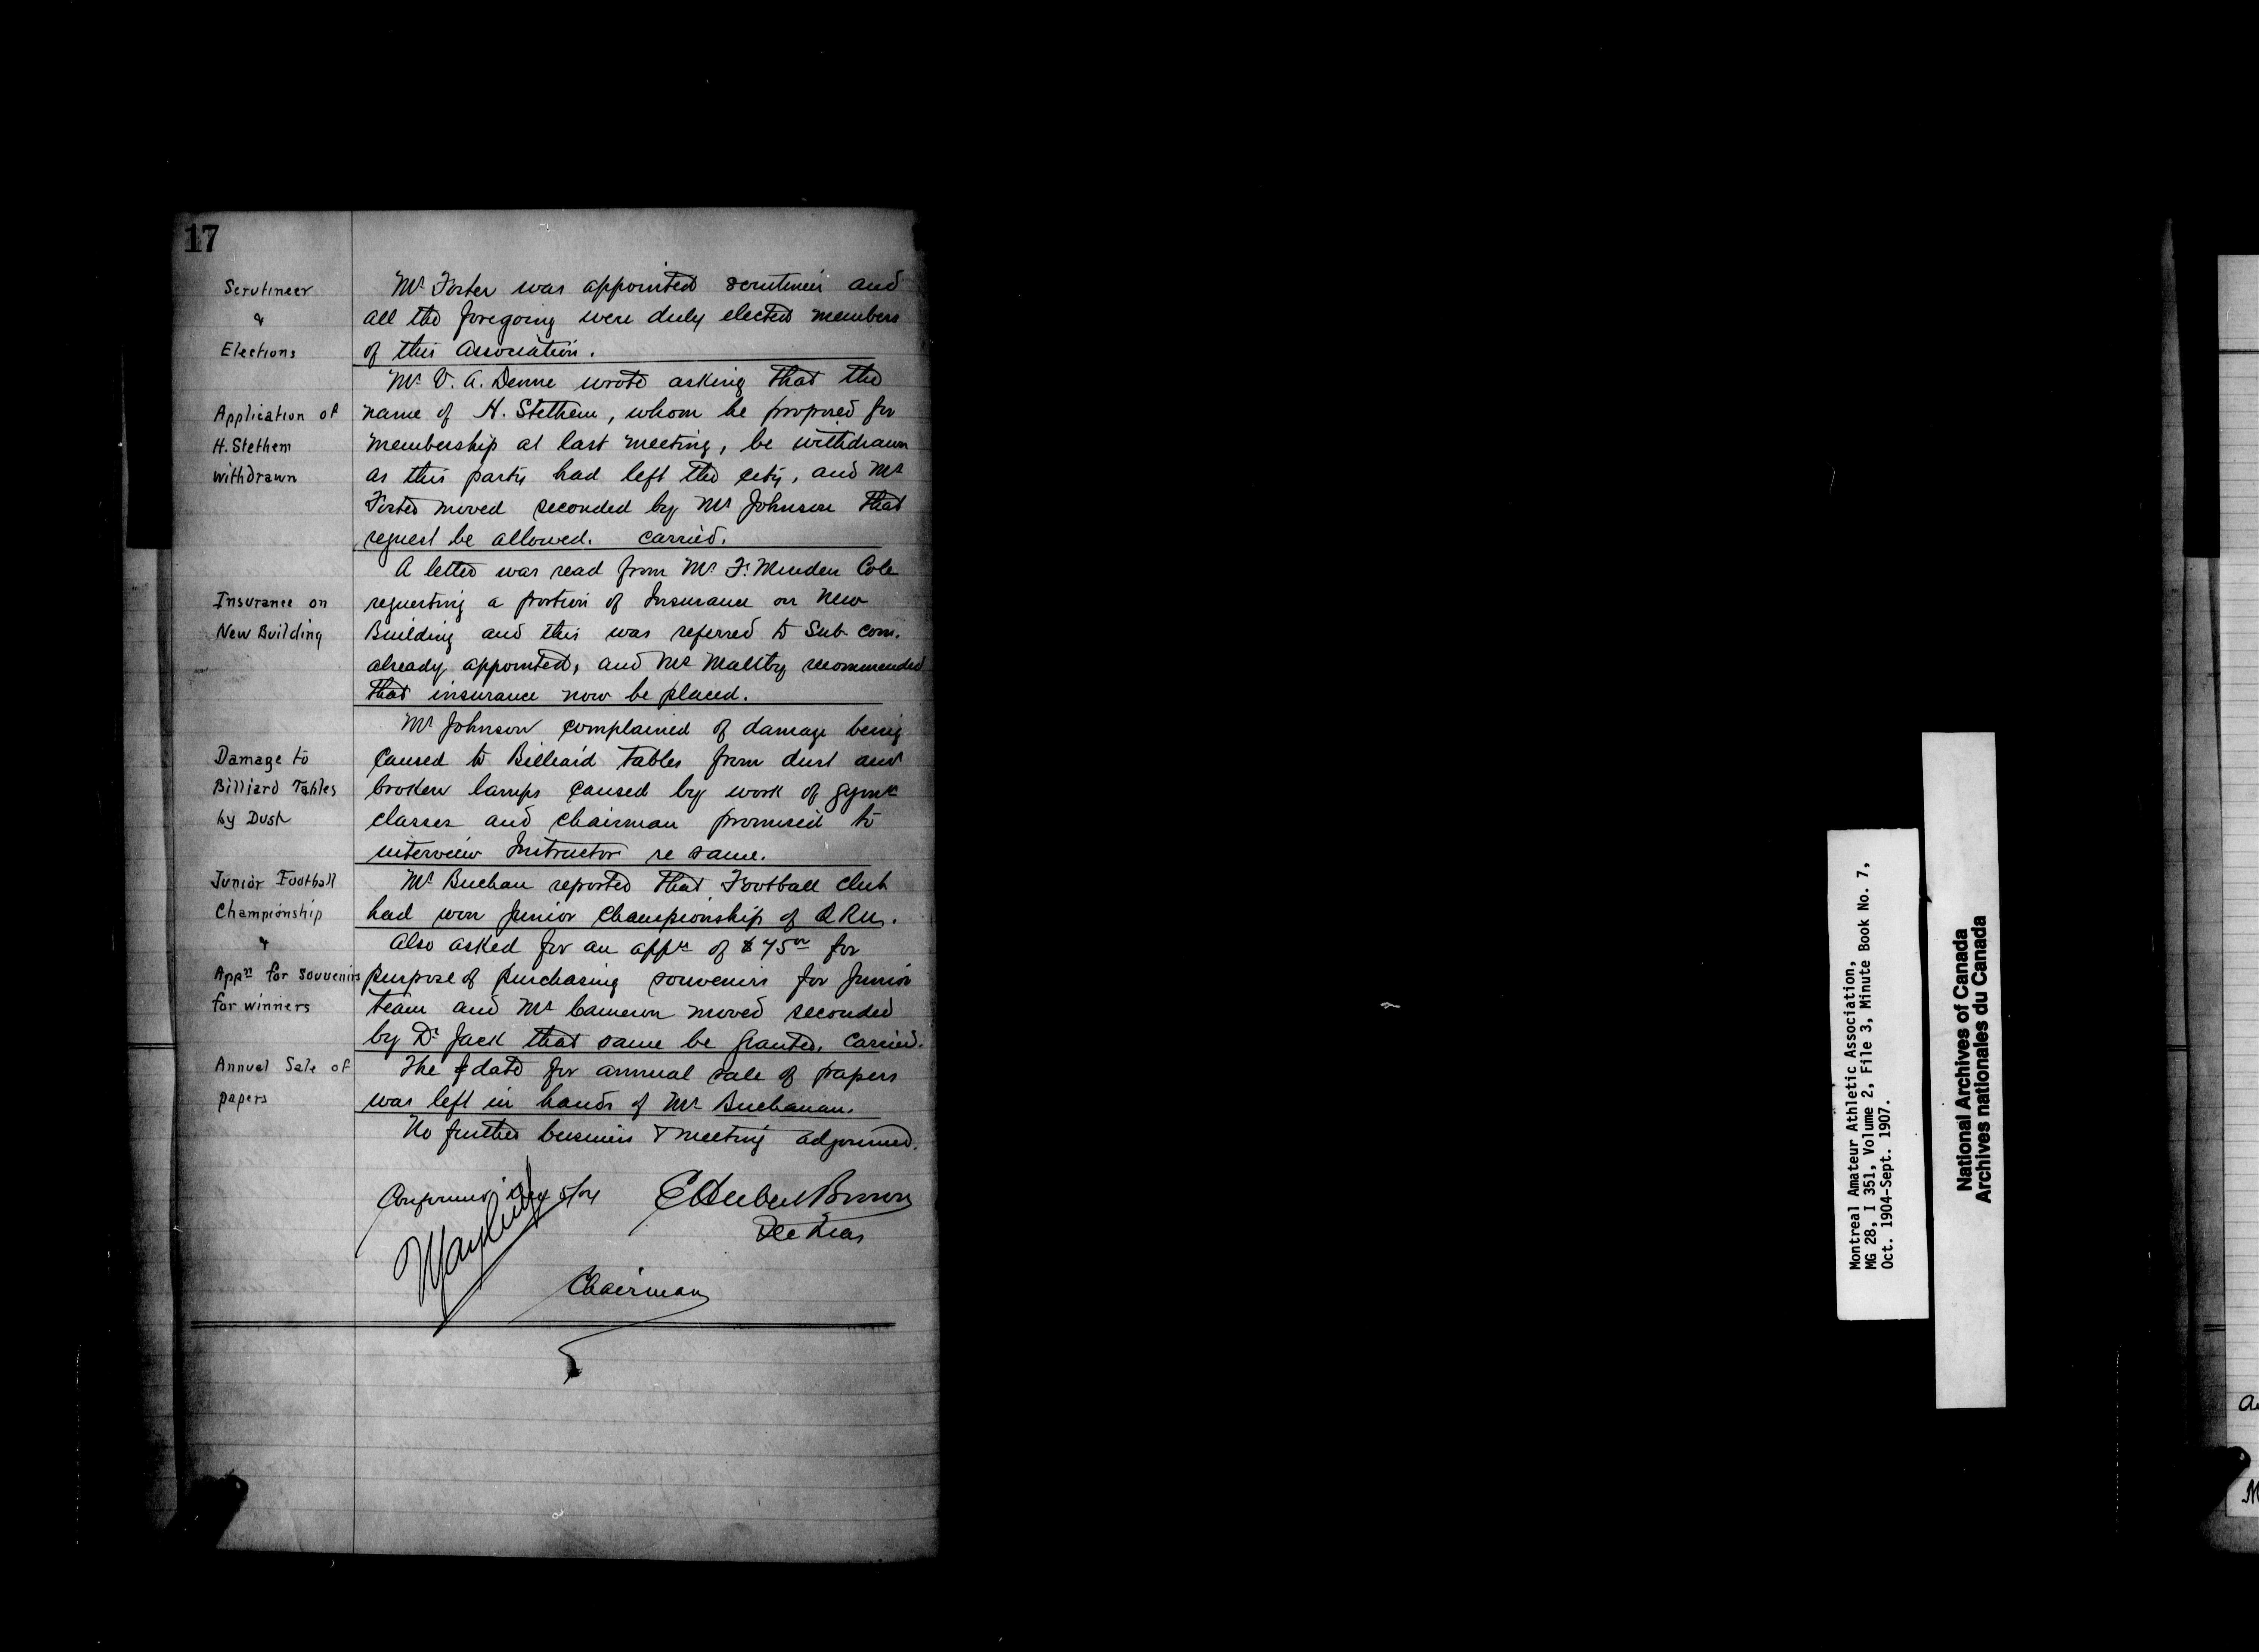 17
Scrutineer
&
Elections
Mr Foster was appointed scrutineer and
all the foregoing were duly elected members
of this Association.
Application of
H. Stethem
withdrawn
Mr V. A. Denne wrote asking that the
name of H. Stethem, whom he proposed for
membership at last meeting, be withdrawn
as this party had left the city, and Mr
Foster moved seconded by Mr Johnson that
request be allowed. carried.
Insurance on
New Building
A letter was read from Mr F. Minden Cole
requesting a portion of Insurance on New
Building and this was referred to Sub-com.
already appointed, and Mr Maltby recommended
that insurance now be placed.
Damage to
Billiard Tables
by Dust
Mr Johnson complained of damage being
caused to Billiard tables from dust and
broken lamps caused by work of gymn
classes and chairman promised to
interview Instructor re same.
Junior Football
Championship
&
Appn for souvenirs
for winners
Mr Buchan reported that Football club
had won Junior Championship of Q R U.
Also asked for an appn of $75 00 for
purpose of purchasing souvenirs for Junior
team and Mr Cameron moved seconded
by Dr Jack that same be granted. Carried.
Annual Sale of
papers
The date for annual sale of papers
was left in hands of Mr Buchanan.
No further business & meeting adjourned.
Confirmed Dec 5/04
E Herbert Brown
Sec Treas
Chairman
Montreal Amateur Athletic Association,
MG 28, I 351, Volume 2, File 3, Minute Book No. 7,
Oct. 1904-Sept. 1907.
National Archives of Canada
Archives nationales du Canada